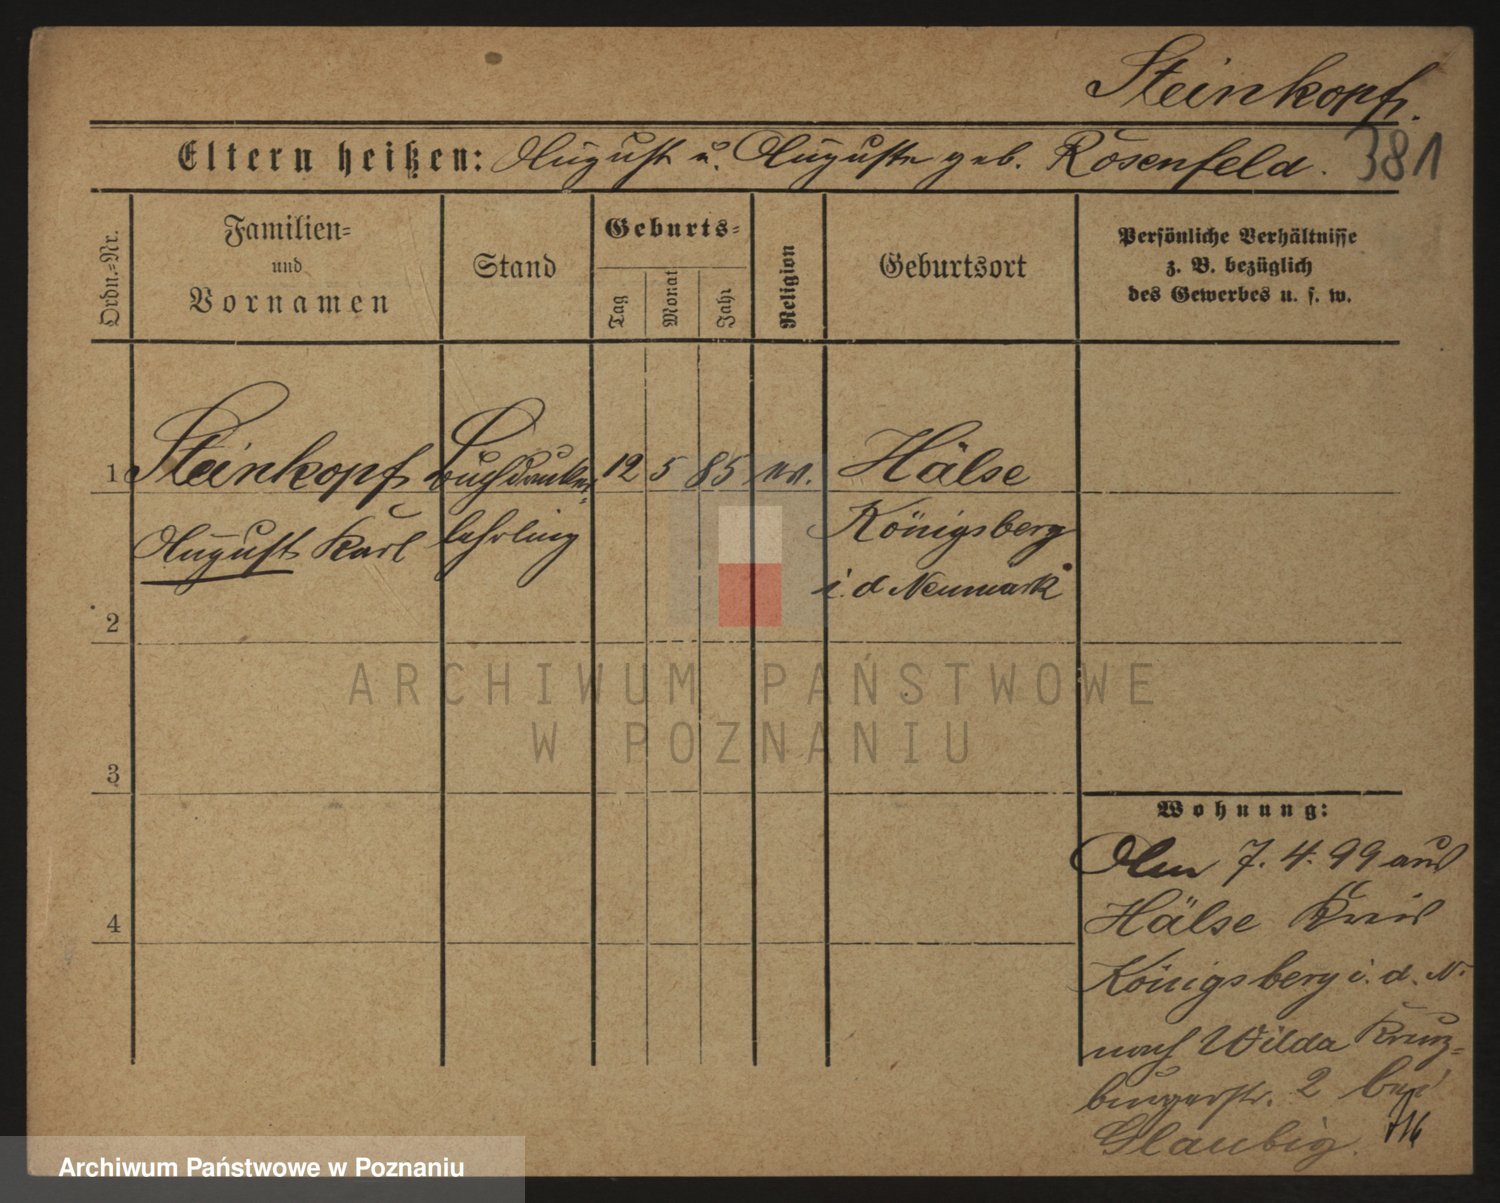 Steinkopf.
381
Eltern heißen: August u. Auguste geb. Rosenfeld.
Ordn.=Nr.
Familien=
und
Vornamen
Stand
Geburts=
Tag
Monat
Jahr
Religion
Geburtsort
Persönliche Verhältnisse
z. B. bezüglich
des Gewerbes u. s. w.
1 Steinkopf Buchdrucker= 12 5 85 ev. Hälse
August Karl lehrling Königsberg
i. d Neumark
2
ARCHIWUM PAŃSTWOWE
W POZNANIU
3
Wohnung:
Am 7. 4. 99 aus
4
Hälse Kreis
Königsberg i. d. N.
nach Wilda Kreuz=
burgerstr. 2 bei
Glaubig.
Archiwum Państwowe w Poznaniu